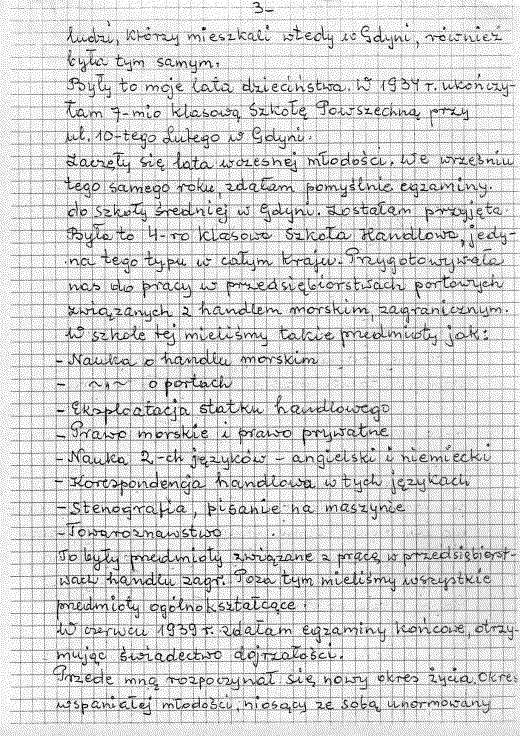 3-
ludzi, którzy mieszkali wtedy w Gdyni, również
była tym samym.
Były to moje lata dzieciństwa. W 1934 r. ukończy-
łam 7-mio klasową Szkołę Powszechną przy
ul. 10-tego Lutego w Gdyni.
Zaczęły się lata wczesnej młodości. We wrześniu
tego samego roku, zdałam pomyślnie egzaminy
do szkoły średniej w Gdyni. Zostałam przyjęta.
Była to 4-ro klasowa Szkoła Handlowa, jedy-
na tego typu w całym kraju. Przygotowywała
nas do pracy w przedsiębiorstwach portowych
związanych z handlem morskim, zagranicznym.
W szkole tej mieliśmy takie przedmioty jak:
- Nauka o handlu morskim
- ~ " ~ o portach
- Eksploatacja statku handlowego
- Prawo morskie i prawo prywatne
- Nauka 2-ch języków - angielski i niemiecki
- Korespondencja handlowa w tych językach
- Stenografia, pisanie na maszynie
- Towaroznawstwo
To były przedmioty związane z pracą w przedsiębiorst-
wach handlu zagr. Poza tym mieliśmy wszystkie
przedmioty ogólnokształcące.
W czerwcu 1939 r. zdałam egzaminy końcowe, otrzy-
mując świadectwo dojrzałości.
Przede mną rozpoczynał się nowy okres życia. Okres
wspaniałej młodości, niosący ze sobą unormowany